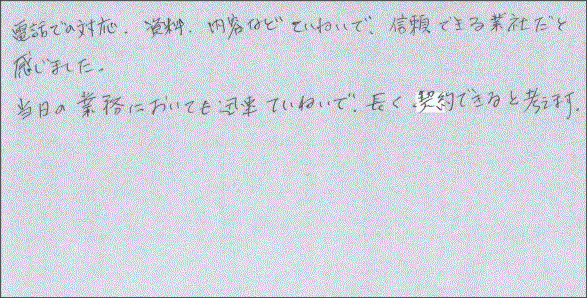 電話での対応、資料、内容などていねいで、信頼できる業社だと
感じました。
当日の業務においても迅速ていねいで、長く契約できると考えます。